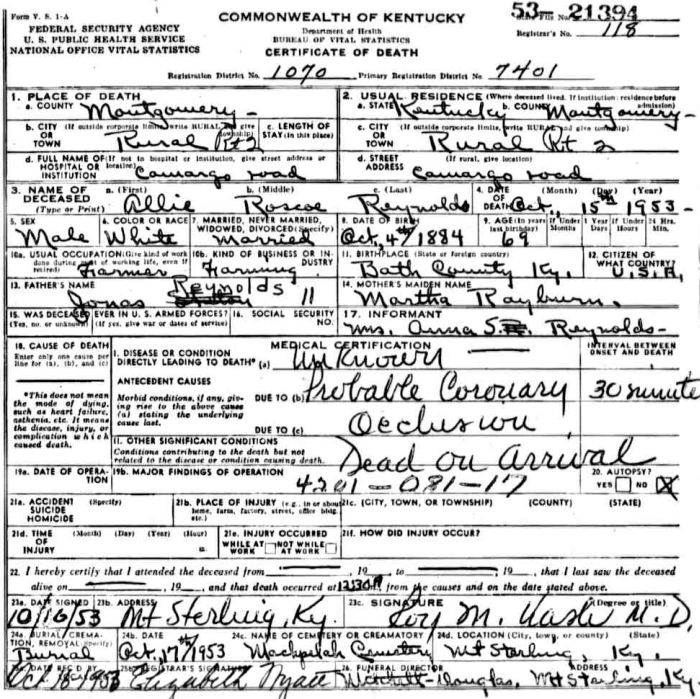 Form V. S. 1-A
FEDERAL SECURITY AGENCY
U. S. PUBLIC HEALTH SERVICE
NATIONAL OFFICE VITAL STATISTICS
COMMONWEALTH OF KENTUCKY
Department of Health
BUREAU OF VITAL STATISTICS
CERTIFICATE OF DEATH
File No. 53- 21394
Registrar's No. 118
Registration District No. 1070 Primary Registration District No. 7401
1. PLACE OF DEATH
a. COUNTY Montgomery
b. CITY (If outside corporate limits, write RURAL and give township) OR TOWN Rural Rt 2
c. LENGTH OF STAY (in this place)
d. FULL NAME OF (If not in hospital or institution, give street address or location) HOSPITAL OR INSTITUTION Camargo road
2. USUAL RESIDENCE (Where deceased lived. If institution: residence before admission)
a. STATE Kentucky b. COUNTY Montgomery
c. CITY (If outside corporate limits, write RURAL and give township) OR TOWN Rural Rt 2
d. STREET ADDRESS (If rural, give location) Camargo road
3. NAME OF DECEASED (Type or Print)
a. (First) Allie b. (Middle) Roscoe c. (Last) Reynolds
4. DATE OF DEATH (Month) (Day) (Year) Oct. 15th 1953
5. SEX Male
6. COLOR OR RACE White
7. MARRIED, NEVER MARRIED, WIDOWED, DIVORCED (Specify) Married
8. DATE OF BIRTH Oct. 4th 1884
9. AGE (In years last birthday) 69 If Under 1 Year Months Days If Under 24 Hrs. Hours Min.
10a. USUAL OCCUPATION (Give kind of work done during most of working life, even if retired) Farmer
10b. KIND OF BUSINESS OR INDUSTRY Farming
11. BIRTHPLACE (State or foreign country) Bath County Ky.
12. CITIZEN OF WHAT COUNTRY? U.S.A.
13. FATHER'S NAME Jonas Reynolds 11
14. MOTHER'S MAIDEN NAME Martha Rayburn.
15. WAS DECEASED EVER IN U. S. ARMED FORCES? (Yes, no, or unknown) (If yes, give war or dates of service)
16. SOCIAL SECURITY NO.
17. INFORMANT Mrs. Anna S. Reynolds
18. CAUSE OF DEATH
Enter only one cause per line for (a), (b), and (c)
*This does not mean the mode of dying, such as heart failure, asthenia, etc. It means the disease, injury, or complication which caused death.
MEDICAL CERTIFICATION
I. DISEASE OR CONDITION DIRECTLY LEADING TO DEATH* (a) Unknown
INTERVAL BETWEEN ONSET AND DEATH
ANTECEDENT CAUSES
Morbid conditions, if any, giving rise to the above cause (a) stating the underlying cause last.
DUE TO (b) Probable Coronary 30 minute
DUE TO (c) Occlusion
II. OTHER SIGNIFICANT CONDITIONS
Conditions contributing to the death but not related to the disease or condition causing death. Dead on Arrival
19a. DATE OF OPERATION
19b. MAJOR FINDINGS OF OPERATION 4201-081-17
20. AUTOPSY? YES NO X
21a. ACCIDENT SUICIDE HOMICIDE (Specify)
21b. PLACE OF INJURY (e.g., in or about home, farm, factory, street, office bldg. etc.)
21c. (CITY, TOWN, OR TOWNSHIP) (COUNTY) (STATE)
21d. TIME OF INJURY (Month) (Day) (Year) (Hour)
21e. INJURY OCCURRED WHILE AT WORK NOT WHILE AT WORK
21f. HOW DID INJURY OCCUR?
22. I hereby certify that I attended the deceased from , 19 , to , 19 , that I last saw the deceased
alive on , 19 , and that death occurred at m., from the causes and on the date stated above.
23a. DATE SIGNED 10/16/53
23b. ADDRESS Mt Sterling, Ky.
23c. SIGNATURE (Degree or title) M. M.D.
24a. BURIAL, CREMATION, REMOVAL (Specify) Burial
24b. DATE Oct. 17th/1953
24c. NAME OF CEMETERY OR CREAMATORY Machpelah Cemetery
24d. LOCATION (City, town, or county) (State) Mt Sterling, Ky.
DATE REC'D BY LOCAL Oct 18 1953
25b. REGISTRAR'S SIGNATURE Elizabeth Wyatt
26. FUNERAL DIRECTOR ADDRESS Douglas, Mt Sterling, Ky.